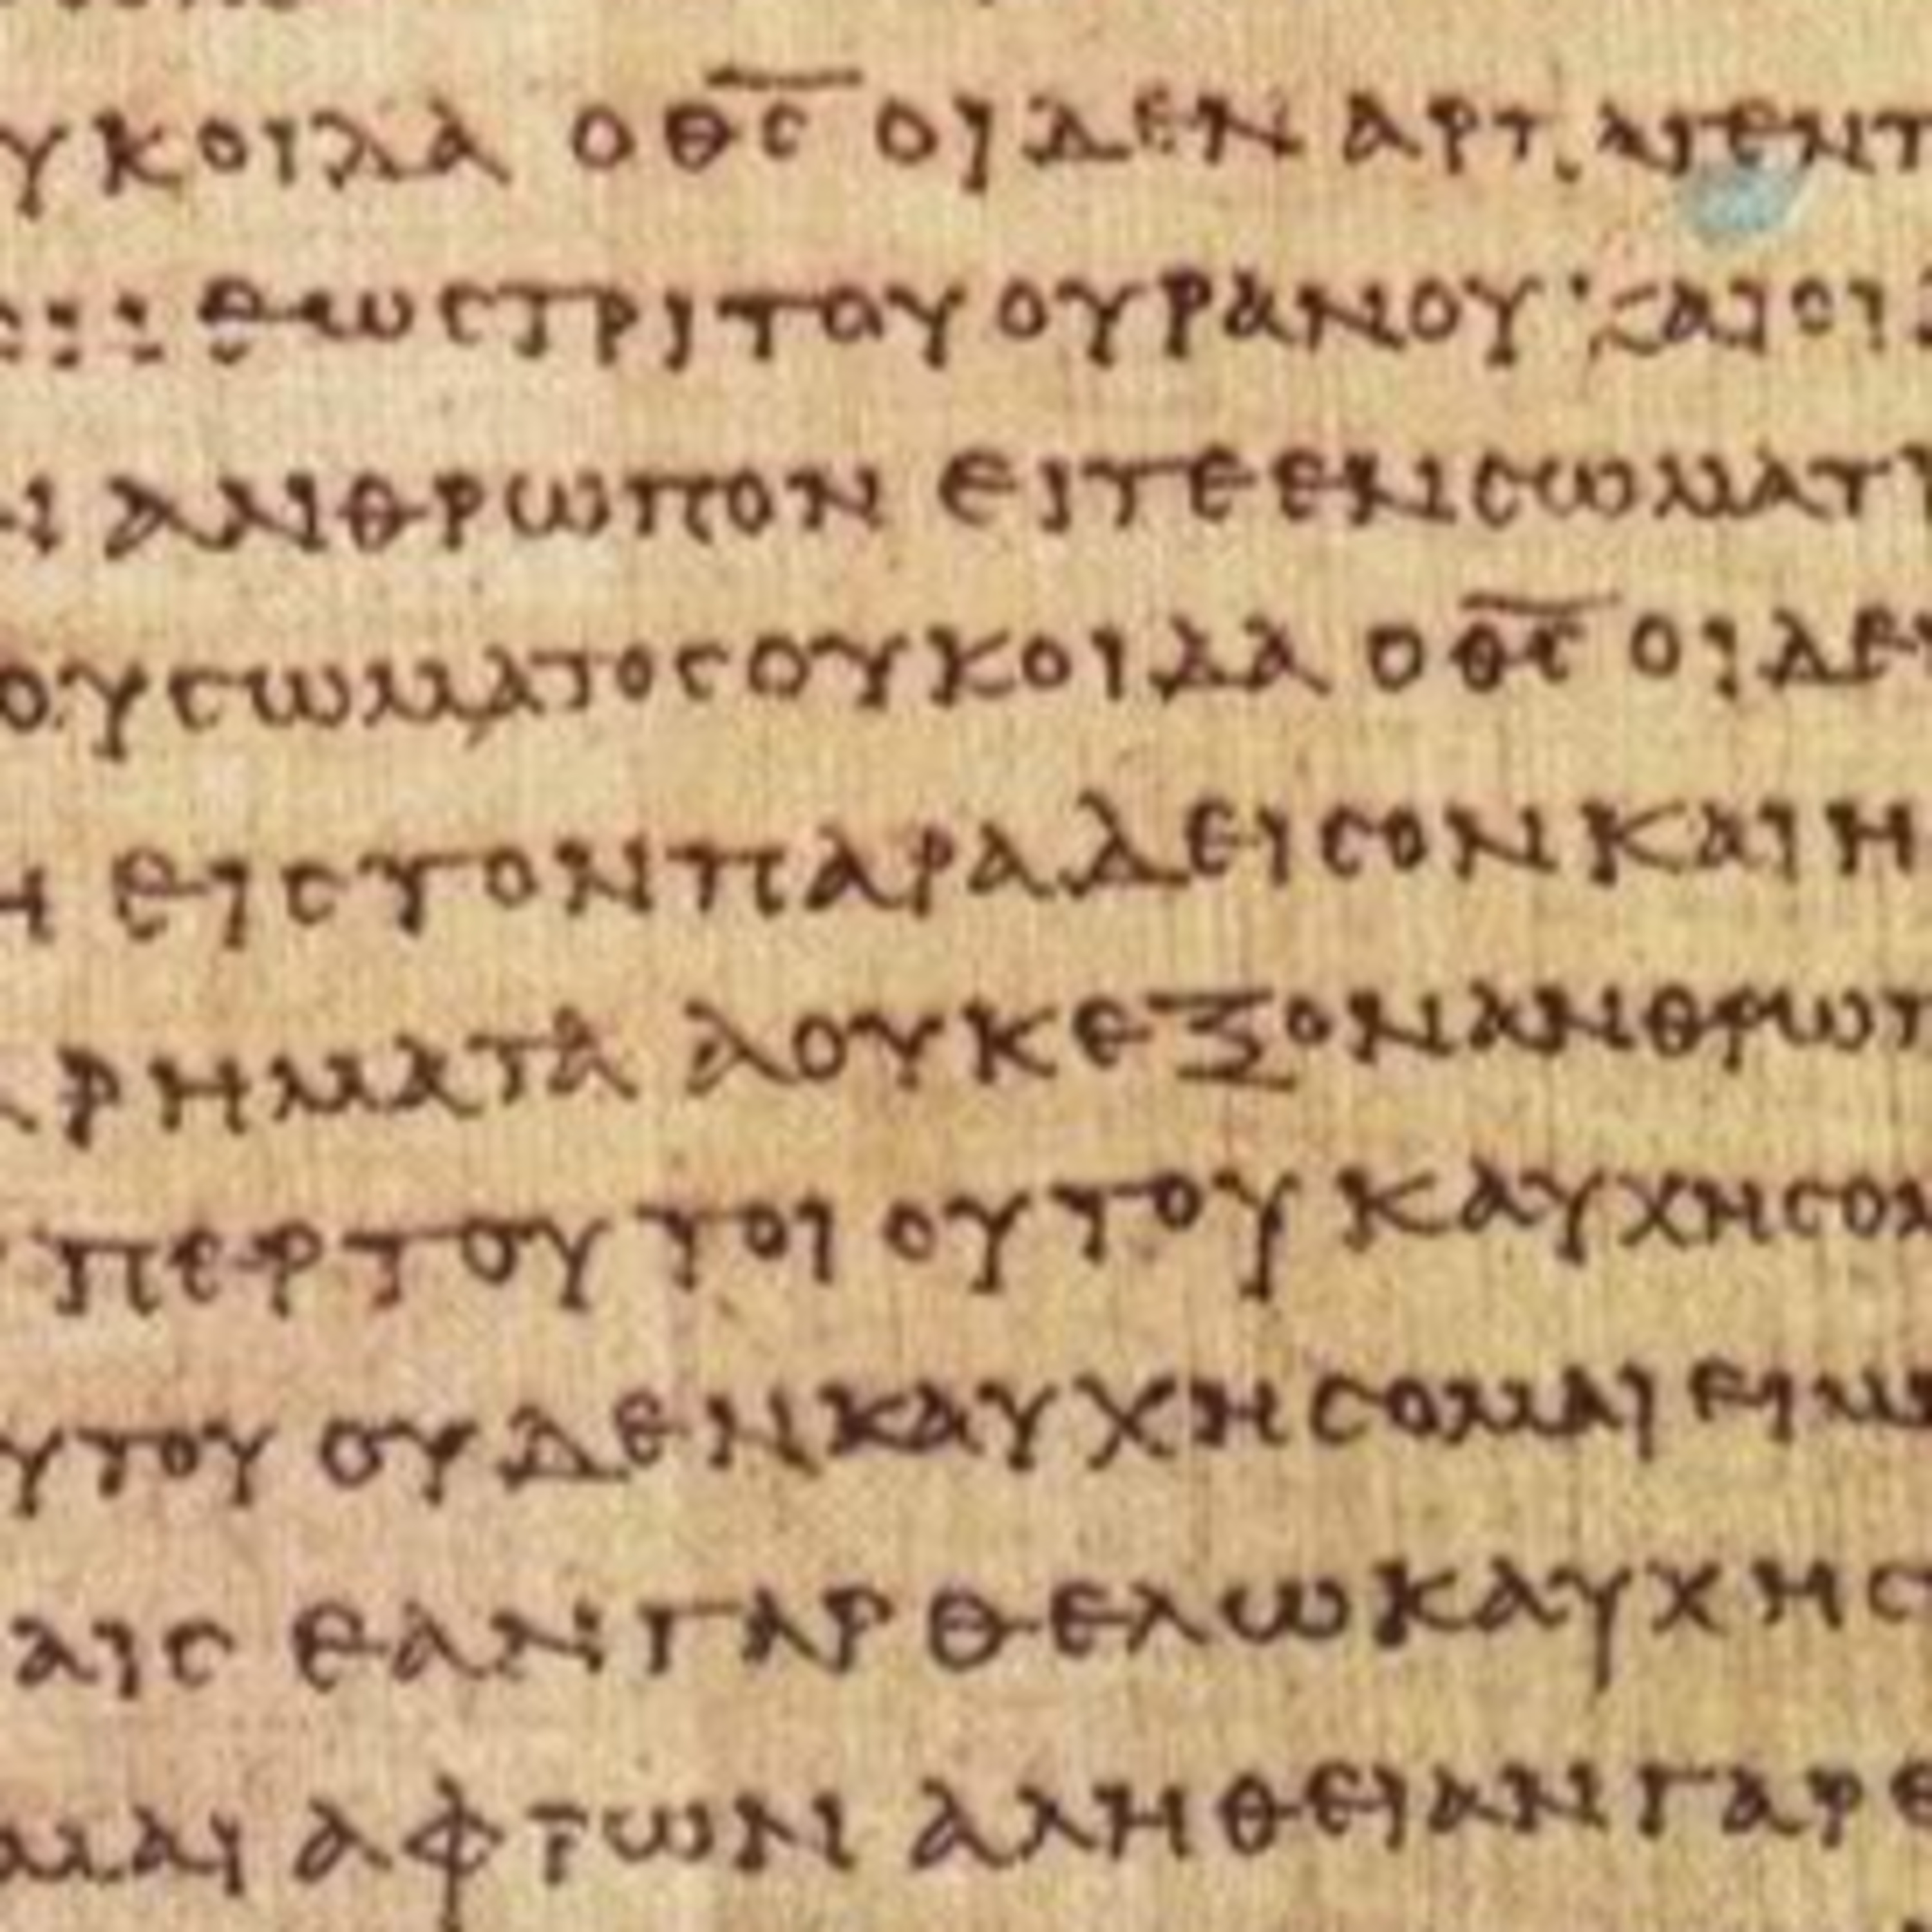 ΥΚΟΙΔΑ Ο Θ̅Σ̅ ΟΙΔΕΝ ΑΡΠ ΑΓΕΝΤ
ΕΩΣ ΤΡΙΤΟΥ ΟΥΡΑΝΟΥ ΚΑΙ ΟΙΔ
Ν ΑΝΘΡΩΠΟΝ ΕΙΤΕ ΕΝ ΣΩΜΑΤΙ
ΟΥ ΣΩΜΑΤΟΣ ΟΥΚ ΟΙΔΑ Ο Θ̅Σ̅ ΟΙΔΕ
Η ΕΙΣ ΤΟΝ ΠΑΡΑΔΕΙΣΟΝ ΚΑΙ Η
ΡΗΜΑΤΑ ΑΟΥΚ ΕΞΟΝ ΑΝΘΡΩΠ
ΠΕΡ ΤΟΥ ΤΟΙΟΥΤΟΥ ΚΑΥΧΗΣΟΜ
ΥΤΟΥ ΟΥΔΕΝ ΚΑΥΧΗΣΟΜΑΙ ΕΙ ΜΗ
ΑΙΣ ΕΑΝ ΓΑΡ ΘΕΛΩ ΚΑΥΧΗΣ
ΜΑΙ ΑΦΡΩΝ ΑΛΗΘΕΙΑΝ ΓΑΡ Ε